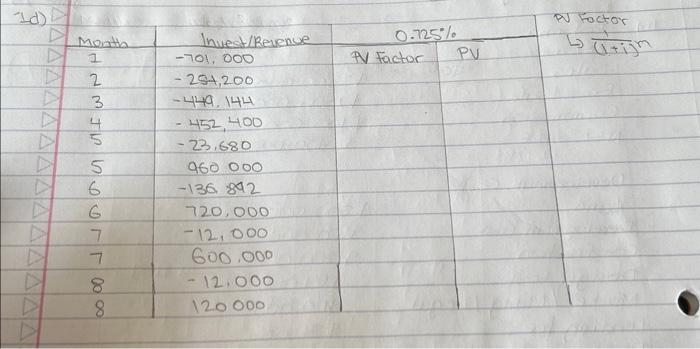 1d)
PV Factor
Month Invest/Revenue 0.725%
↳ 1/(1+i)^n
1 -701,000 PV Factor PV
2 -254,200
3 -449,144
4 -452,400
5 -23,680
5 960 000
6 -136 892
6 720,000
7 -12,000
7 600,000
8 -12,000
8 120 000